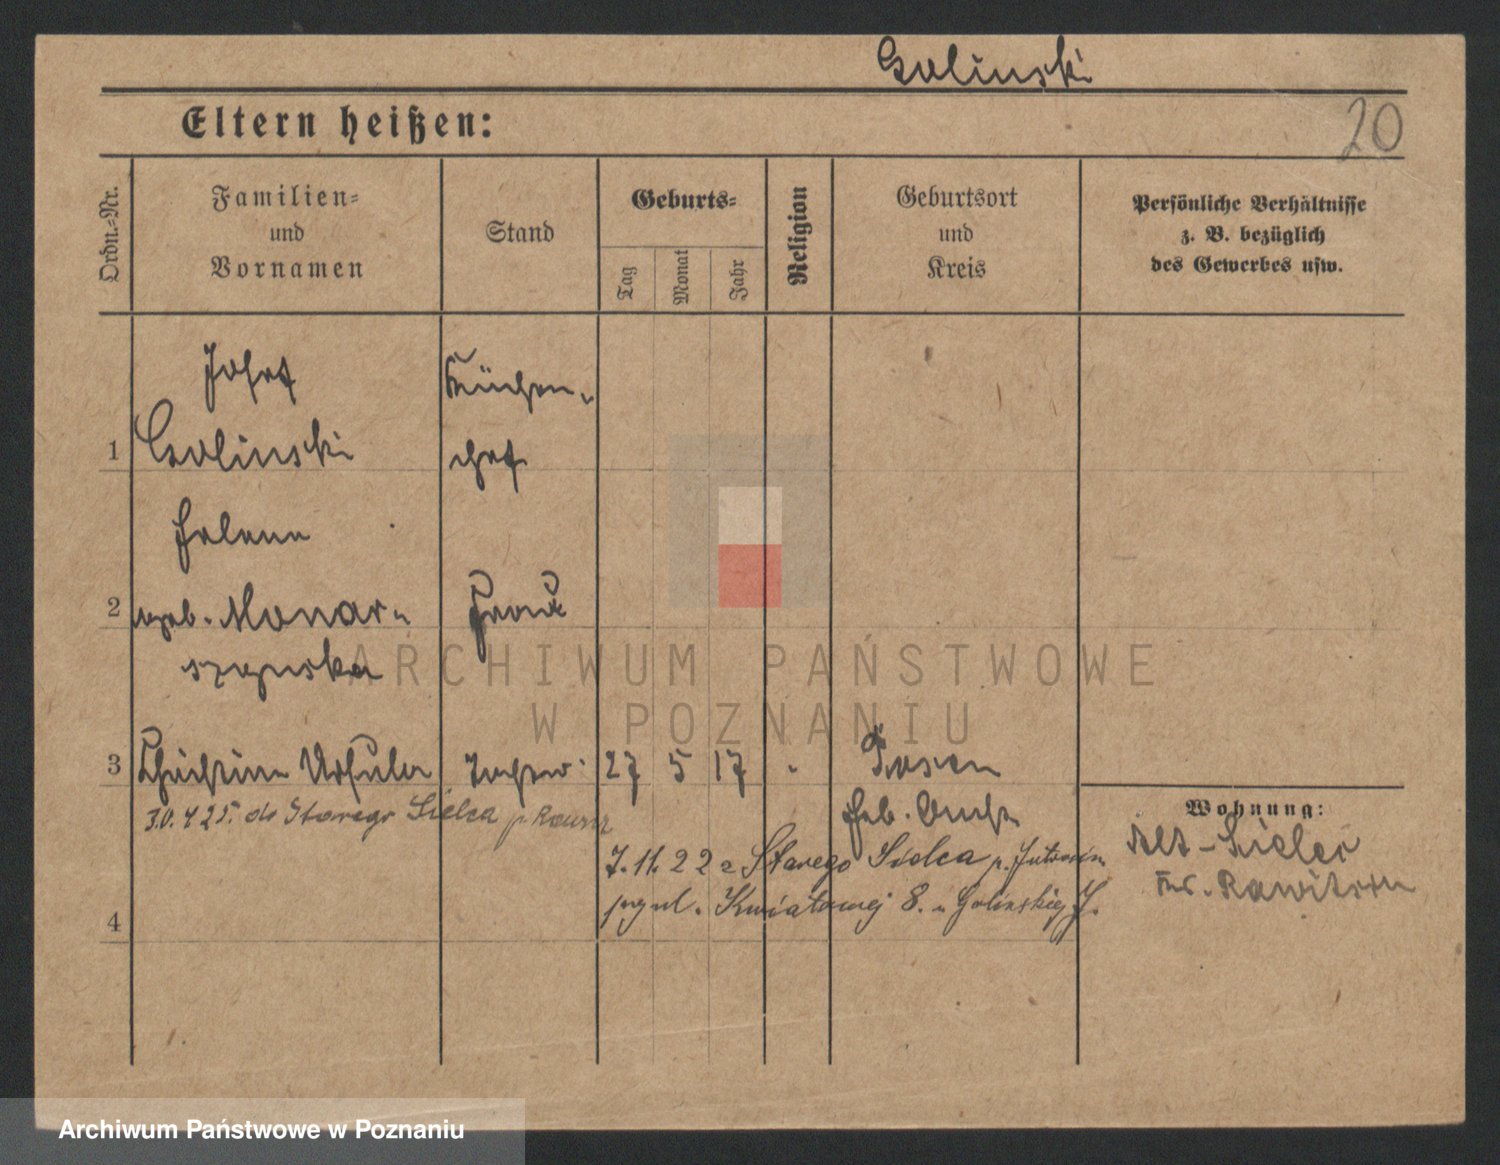 Golinski
20
Eltern heißen:
Ordn.=Nr.
Familien=
und
Vornamen
Stand
Geburts=
Tag
Monat
Jahr
Religion
Geburtsort
und
Kreis
Persönliche Verhältnisse
z. B. bezüglich
des Gewerbes usw.
Josef
Küchen-
1 Golinski
chef
Helene
2 geb. Monar-
Frau
szynska
3 Christine Ursula Tochter 27 5 17 Posen
30.4 25. do Starego Sielca p.
Geb.
Wohnung:
7.11.22 z Starego Sielca p. Jutrosin
Alt-Sielec
Kwiatowej 8. u Golinskiej J.
Kr. Rawitsch
4
ARCHIWUM PAŃSTWOWE
W POZNANIU
Archiwum Państwowe w Poznaniu